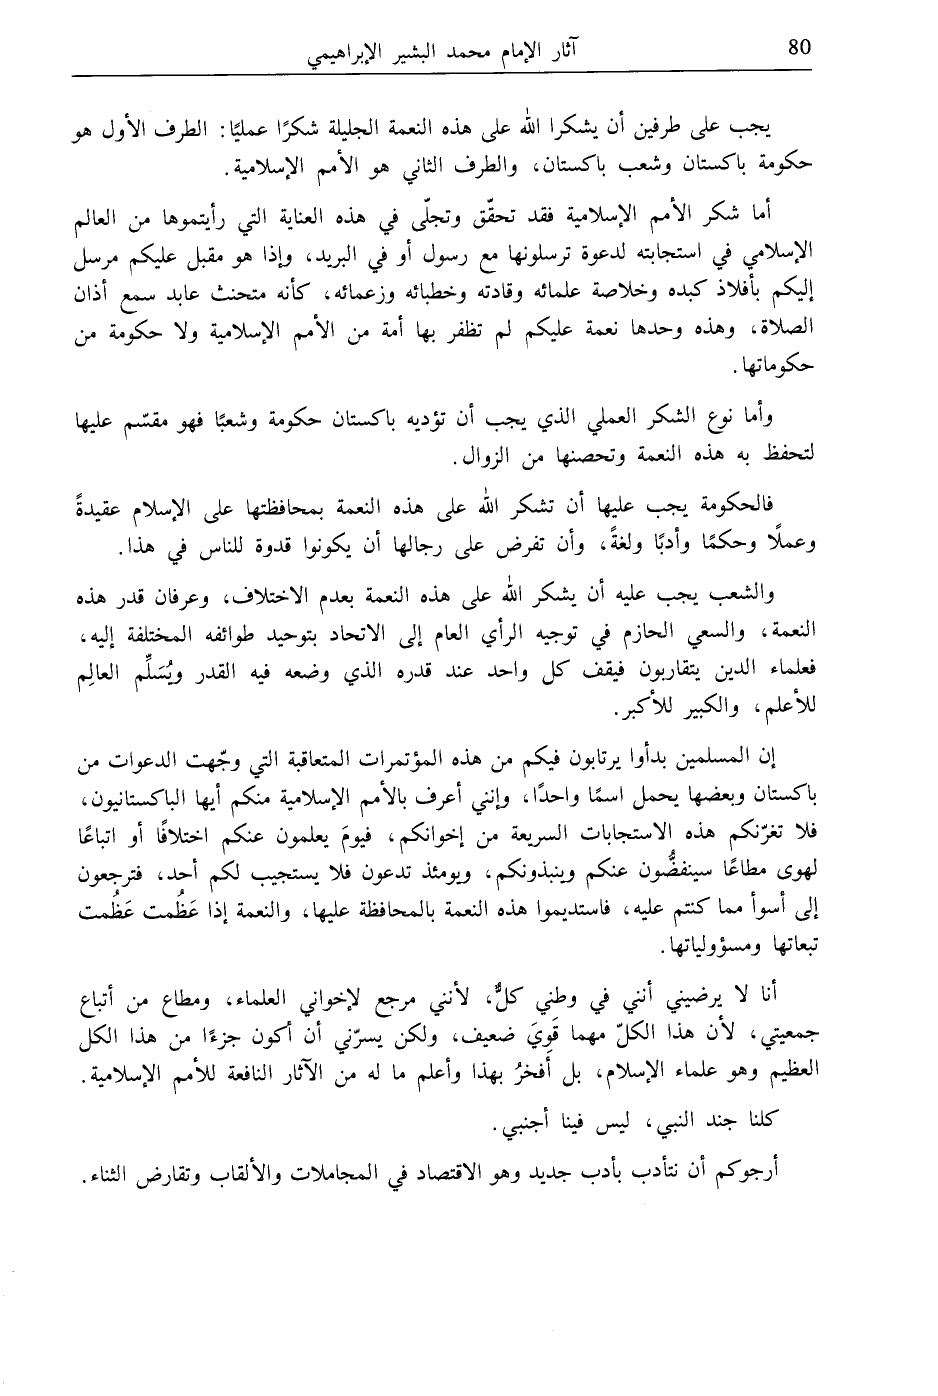 80
آثار الإمام محمد البشير الإبراهيمي
يجب على طرفين أن يشكرا الله على هذه النعمة الجليلة شكرًا عمليًا: الطرف الأول هو
حكومة باكستان وشعب باكستان، والطرف الثاني هو الأمم الإسلامية.
أما شكر الأمم الإسلامية فقد تحقّق وتجلّى في هذه العناية التي رأيتموها من العالم
الإسلامي في استجابته لدعوة ترسلونها مع رسول أو في البريد، وإذا هو مقبل عليكم مرسل
إليكم بأفلاذ كبده وخلاصة علمائه وقادته وخطبائه وزعمائه، كأنه متحنث عابد سمع أذان
الصلاة، وهذه وحدها نعمة عليكم لم تظفر بها أمة من الأمم الإسلامية ولا حكومة من
حكوماتها.
وأما نوع الشكر العملي الذي يجب أن تؤديه باكستان حكومة وشعبًا فهو مقسّم عليها
لتحفظ به هذه النعمة وتحصنها من الزوال.
فالحكومة يجب عليها أن تشكر الله على هذه النعمة بمحافظتها على الإسلام عقيدةً
وعملًا وحكمًا وأدبًا ولغةً، وأن تفرض على رجالها أن يكونوا قدوة للناس في هذا.
والشعب يجب عليه أن يشكر الله على هذه النعمة بعدم الاختلاف، وعرفان قدر هذه
النعمة، والسعي الحازم في توجيه الرأي العام إلى الاتحاد بتوحيد طوائفه المختلفة إليه،
فعلماء الدين يتقاربون فيقف كل واحد عند قدره الذي وضعه فيه القدر ويُسَلِّم العالِم
للأعلم، والكبير للأكبر.
إن المسلمين بدأوا يرتابون فيكم من هذه المؤتمرات المتعاقبة التي وجّهت الدعوات من
باكستان وبعضها يحمل اسمًا واحدًا، وإنني أعرف بالأمم الإسلامية منكم أيها الباكستانيون،
فلا تغرّنكم هذه الاستجابات السريعة من إخوانكم، فيومَ يعلمون عنكم اختلافًا أو اتباعًا
لهوى مطاعًا سينفضُّون عنكم وينبذونكم، ويومئذ تدعون فلا يستجيب لكم أحد، فترجعون
إلى أسوأ مما كنتم عليه، فاستديموا هذه النعمة بالمحافظة عليها، والنعمة إذا عَظُمت عَظُمت
تبعاتها ومسؤولياتها.
أنا لا يرضيني أنني في وطني كلٌّ، لأنني مرجع لإخواني العلماء، ومطاع من أتباع
جمعيتي، لأن هذا الكلّ مهما قَوِيَ ضعيف، ولكن يسرّني أن أكون جزءًا من هذا الكل
العظيم وهو علماء الإسلام، بل أفخرُ بهذا وأعلم ما له من الآثار النافعة للأمم الإسلامية.
كلنا جند النبي، ليس فينا أجنبي.
أرجوكم أن نتأدب بأدب جديد وهو الاقتصاد في المجاملات والألقاب وتقارض الثناء.